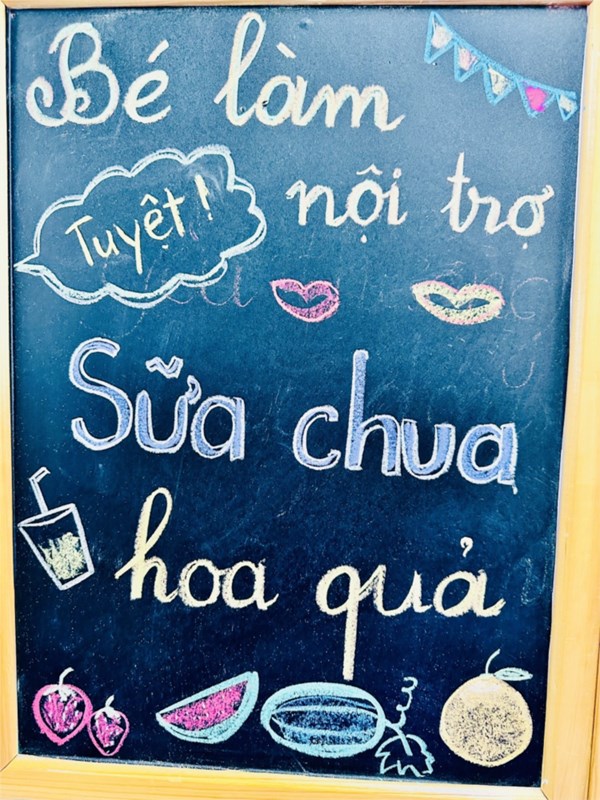 Bé làm
nội trợ
Tuyệt!
Sữa chua
hoa quả